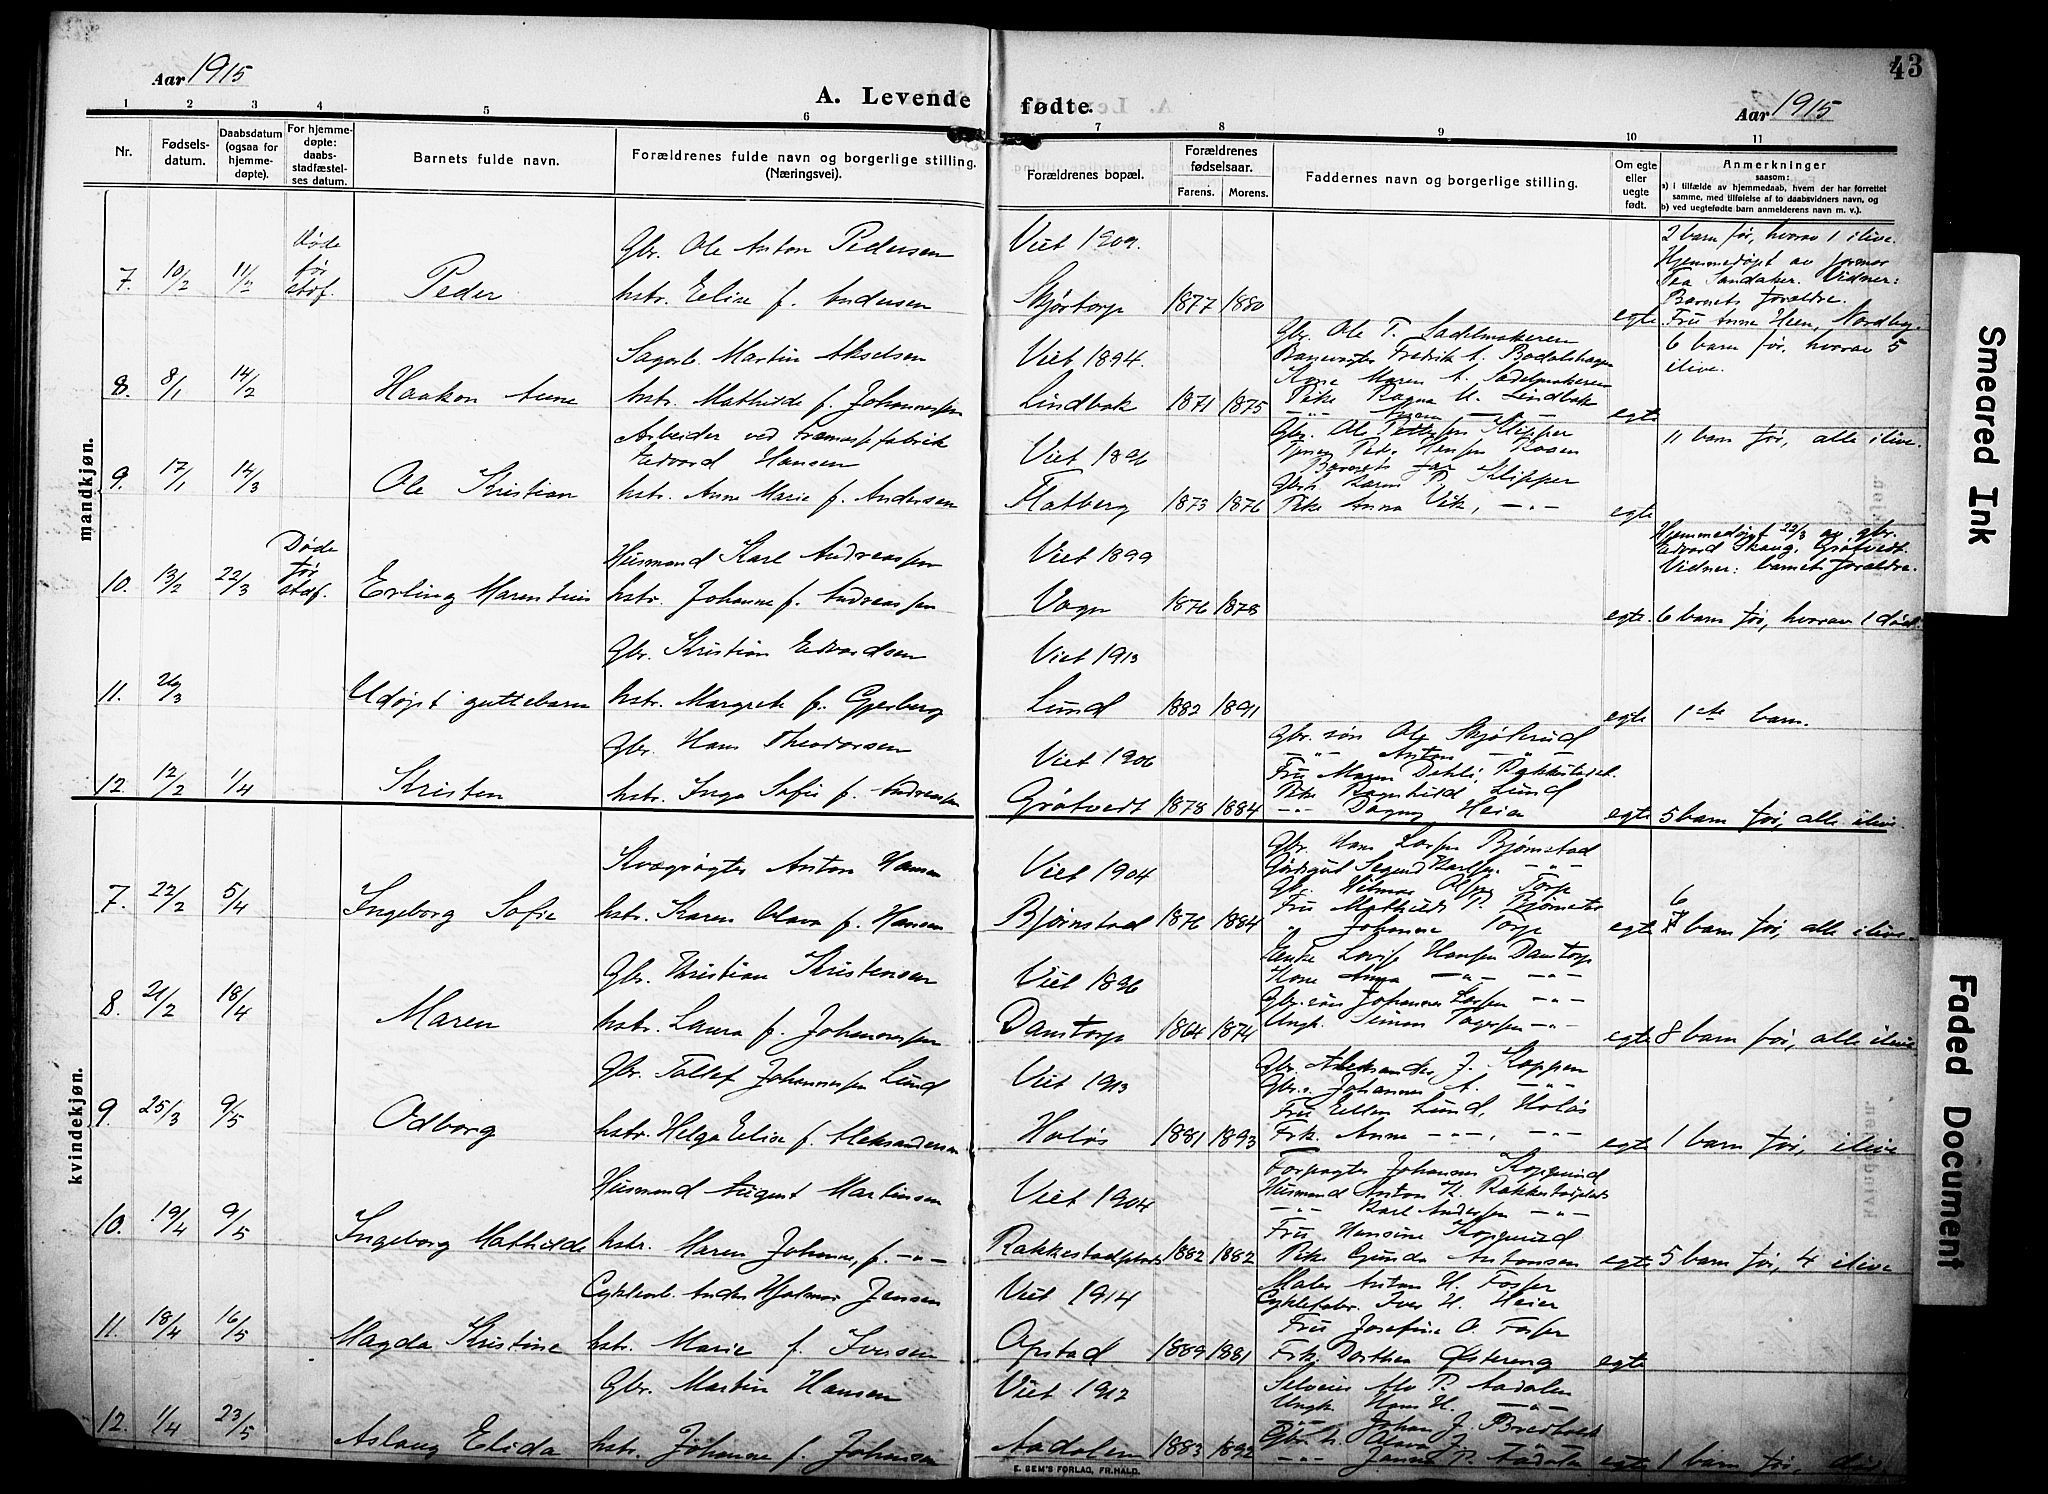 43
Aar 1915
A. Levende fødte.
Aar 1915
1 2 3 4 5 6 7 8 9 10 11
Nr.
Fødsels-
datum.
Daabsdatum
(ogsaa for
hjemme-
døpte).
For hjemme-
døpte:
daabs-
stadfæstel-
ses datum.
Barnets fulde navn.
Forældrenes fulde navn og borgerlige stilling.
(Næringsvei).
Forældrenes bopæl.
Forældrenes
fødselsaar.
Farens. Morens.
Faddernes navn og borgerlige stilling.
Om egte
eller
uegte
født.
Anmerkninger
saasom:
a) i tilfælde av hjemmedaab, hvem der har forrettet
samme, med tilføielse af to daabsvidners navn, og
b) ved uegtefødte barn anmelderens navn m. v.).
mandkjøn.
7. 10/2 11/2
Døde
før
stdf.
Peder
Gbr. Ole Anton Pedersen
hstr. Elise f. Andersen
Viet 1909.
Skjørtorp 1877 1880
egte
2 barn før, hvorav 1 ilive.
Hjemmedøpt av jormor
Tea Sandaker. Vidner:
Barnets foraldre.
Fru Anne Heen, Nordby.
8. 8/1 14/2
Haakon Arne
Sagarb. Martin Akselsen
hstr. Mathilde f. Johannessen
Viet 1894.
Lindbak 1871 1875
Gbr. Ole T. Sadelmakeren
Banevogter Fredrik A. Bodalshagen
Kone Maren A. Sadelmakeren
Pike Ragna M. Lindbak
egte
6 barn før, hvorav 5
ilive.
9. 17/1 14/3
Ole Kristian
Arbeider ved
Edvard Hansen
hstr. Anne Marie f. Andersen
Viet 1896
Flatberg 1873 1876
Gbr. Ole Pettersen Klipper
Peder Hansen
Barnets far
Gbrk. Karen P. Klipper
Pike Anna Vik, -"-
egte
11 barn før, alle ilive.
10. 13/2 22/3
Døde
før
stdf.
Erling Marentius
Husmand Karl Andreassen
hstr. Johanne f. Andreassen
Viet 1899
Vagn 1876 1878
egte.
Hjemmedøpt 22/3 av gbr.
Edvard Skaug, Grøtvedt.
Vidner: barnets foraldre.
6 barn før, hvorav 1 død.
11. 26/3
Udøpt guttebarn
Gbr. Kristian Edvardsen
hstr. Margrete f. Gjerberg
Viet 1913
Lund 1882 1891
egte
1ste barn.
12. 12/2 1/4
Kristen
Gbr. Hans Theodorsen
hstr. Inga Sofie f. Andreassen
Viet 1906
Grøtvedt 1878 1884
Gbr. søn Ole Skjøkerud
-"- Anton -"-
Fru Maren Dehli, Rakkestad.
Pike Ragnhild Lund
-"- Dagny Heier
egte
5 barn før, alle ilive.
kvindekjøn.
7. 22/2 5/4
Ingeborg Sofie
Kvægrøgter Anton Hansen
hstr. Karen Olava f. Hansen
Viet 1904
Bjørnstad 1876 1884
Gbr. Hans Larsen Bjørnstad
Gaardsgut Segund Karlsen -"-
Gbr. Hilmar Olsen Torp
Fru Mathilde P. Bjørnstad
" Johanne Torp
egte
6 barn før, alle ilive.
8. 21/2 18/4
Maren
Gbr. Kristian Kristensen
hstr. Laura f. Johannessen
Viet 1896
Damtorp 1864 1874
Enke Lovise Hansen Damtorp
Kone Anna -"- -"-
Gbr. søn Johannes Larsen -"-
Ungk. Simon -"-
egte
8 barn før, alle ilive
9. 25/3 9/5
Odborg
Gbr. Tollef Johannessen Lund
hstr. Helga Elise f. Aleksandersen
Viet 1913
Holøs 1881 1893
Gbr. Aleksander J. Koppen
Gbrs. Johannes A. -"-
Fru Ellen Lund, Holøs
Frk. Anne -"-, -"-
egte
1 barn før, ilive
10. 19/4 9/5
Ingeborg Mathilde
Husmand August Martinsen
hstr. Maren Johanne, f. -"-
Viet 1904
Rakkestadplads 1882 1882
Forpagter Johannes Kopperud
Husmand Anton K. Rakkestadplads
-"- Karl Andersen -"-
Fru Hansine Kopperud
Pike Gunda Antonsen
egte
5 barn før, 4 ilive
11. 18/4 16/5
Magda Kristine
Cyklearb. Anders Hjalmar Jensen
hstr. Marie f. Iversen
Viet 1914
Opstad 1889 1881
Maler Anton H. Fosser
Cyklefabr. Iver H. Heier
Fru Josefine O. Fosser
Frk. Dorthea Østereng
egte
12. 1/4 23/5
Aslaug Elida
Gbr. Martin Hansen
hstr. Johanne f. Johansen
Viet 1912
Aadalen 1883 1892
Selveier Alv P. Aadalen
Ungk. Hans H. -"-
-"- Johan J. Bredholt
Gbr. h. Olava J. "
-"- Janna P. Aadalen
egte
1 barn før,
E. SEM'S FORLAG, FR.HALD.
Smeared Ink
Faded Document